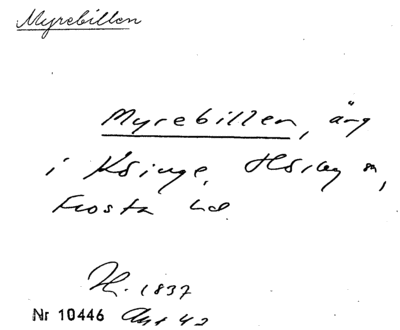 Myrebillen
Myrebillen, äng
i Ksinge, Hörby sn,
Frosta hd
H. 1837
Nr 10446 42